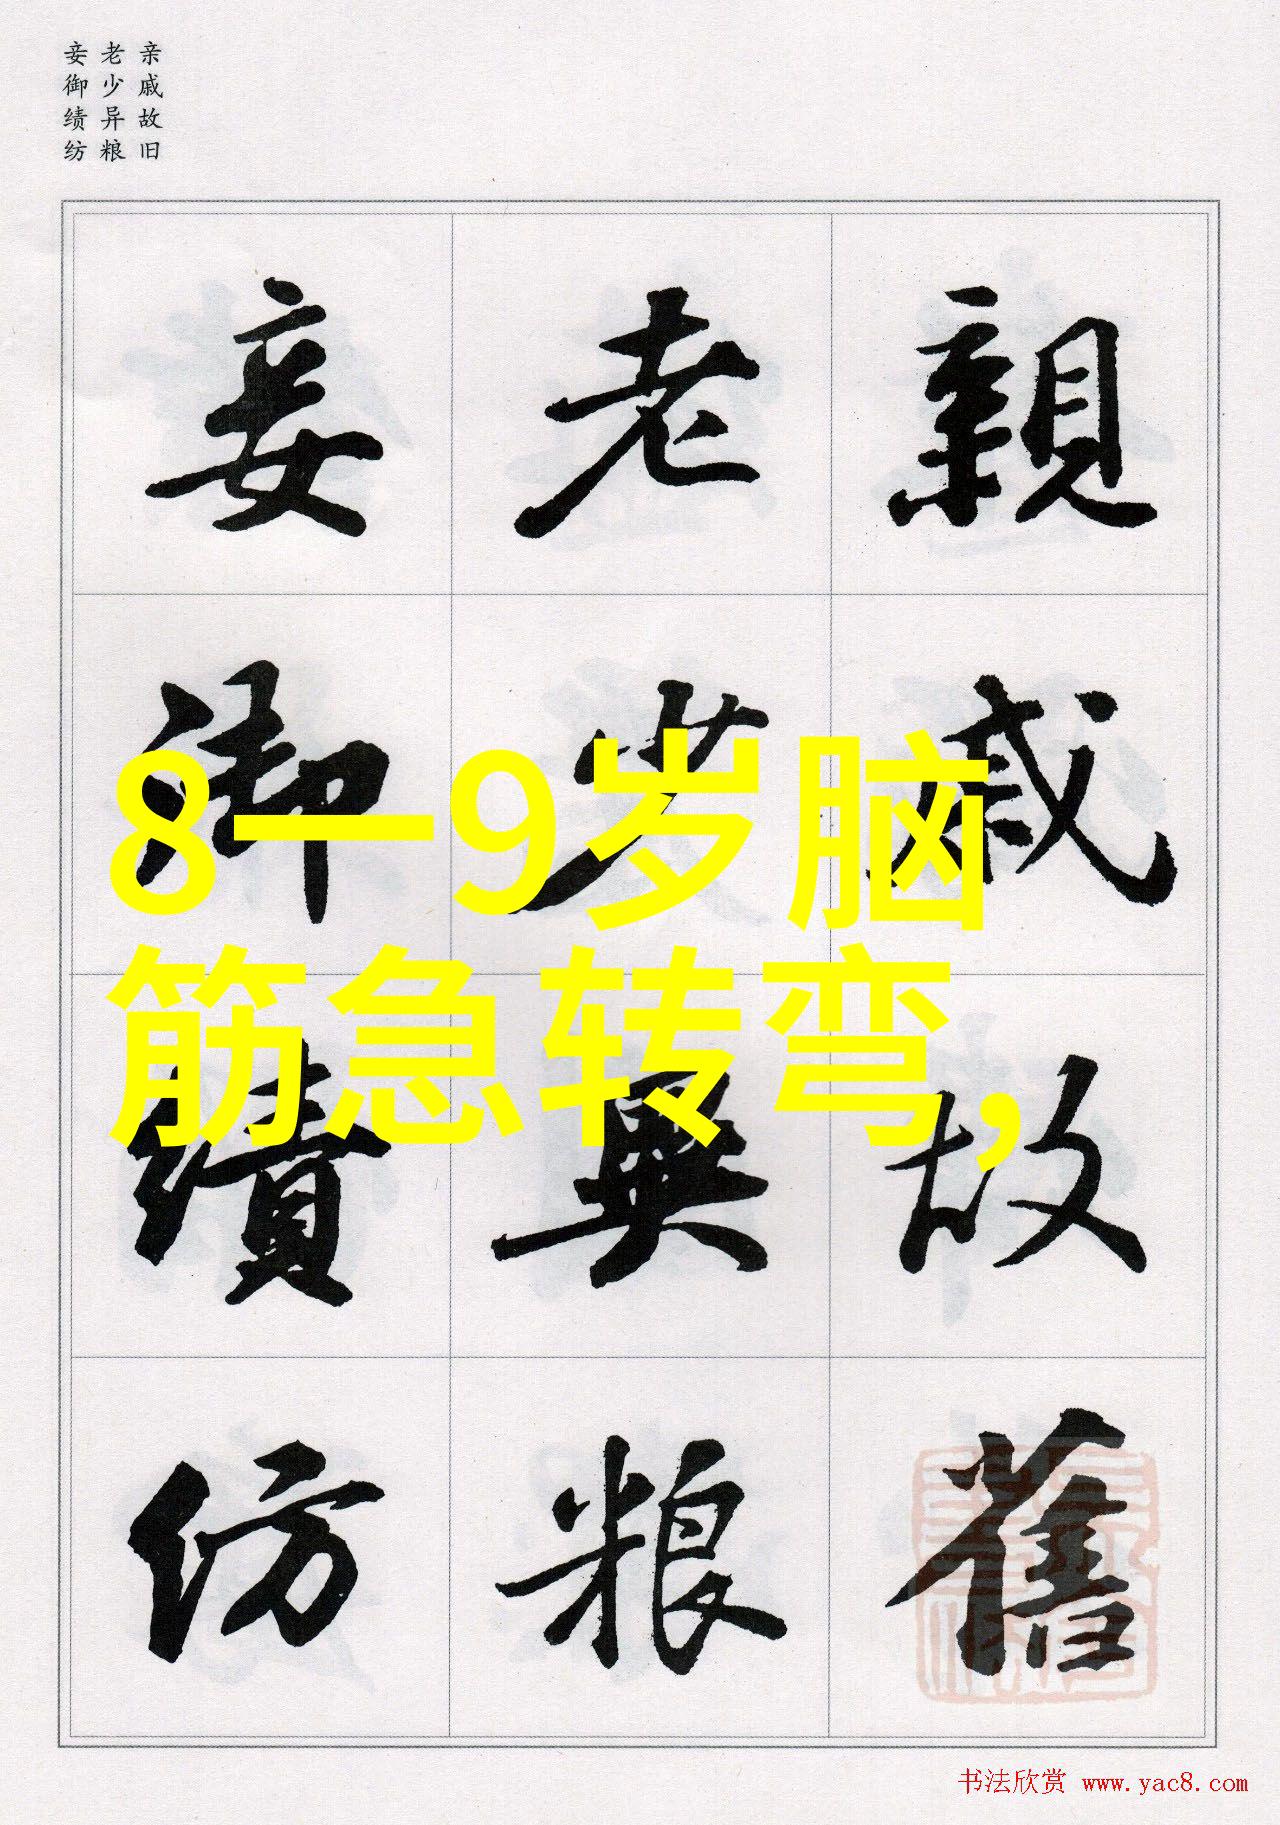 亲戚故旧
老少异粮
妾御绩纺
親戚故舊
老少異粮
妾御績紡
8一9岁脑
筋急转弯,
书法欣赏 www.yac8.com